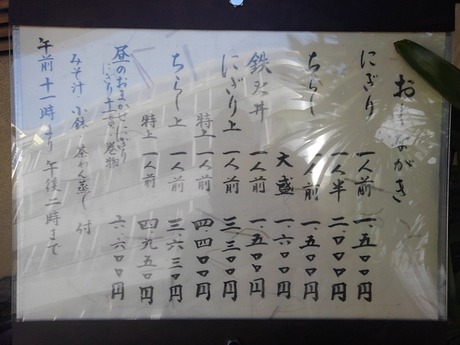 おしながき
にぎり 一人前 一、五〇〇円
一人半 二、〇〇〇円
ちらし 一人前 一、五〇〇円
大盛 一、六〇〇円
鉄火丼 一人前 一、五〇〇円
にぎり上 一人前 三、三〇〇円
特上 一人前 四四〇〇円
ちらし上 一人前 三、六三〇円
特上 一人前 四九五〇円
昼のおまかせにぎり 六、六〇〇円
にぎり十一貫 巻物
みそ汁 小鉢 茶わん蒸し 付
午前十一時より 午後二時まで